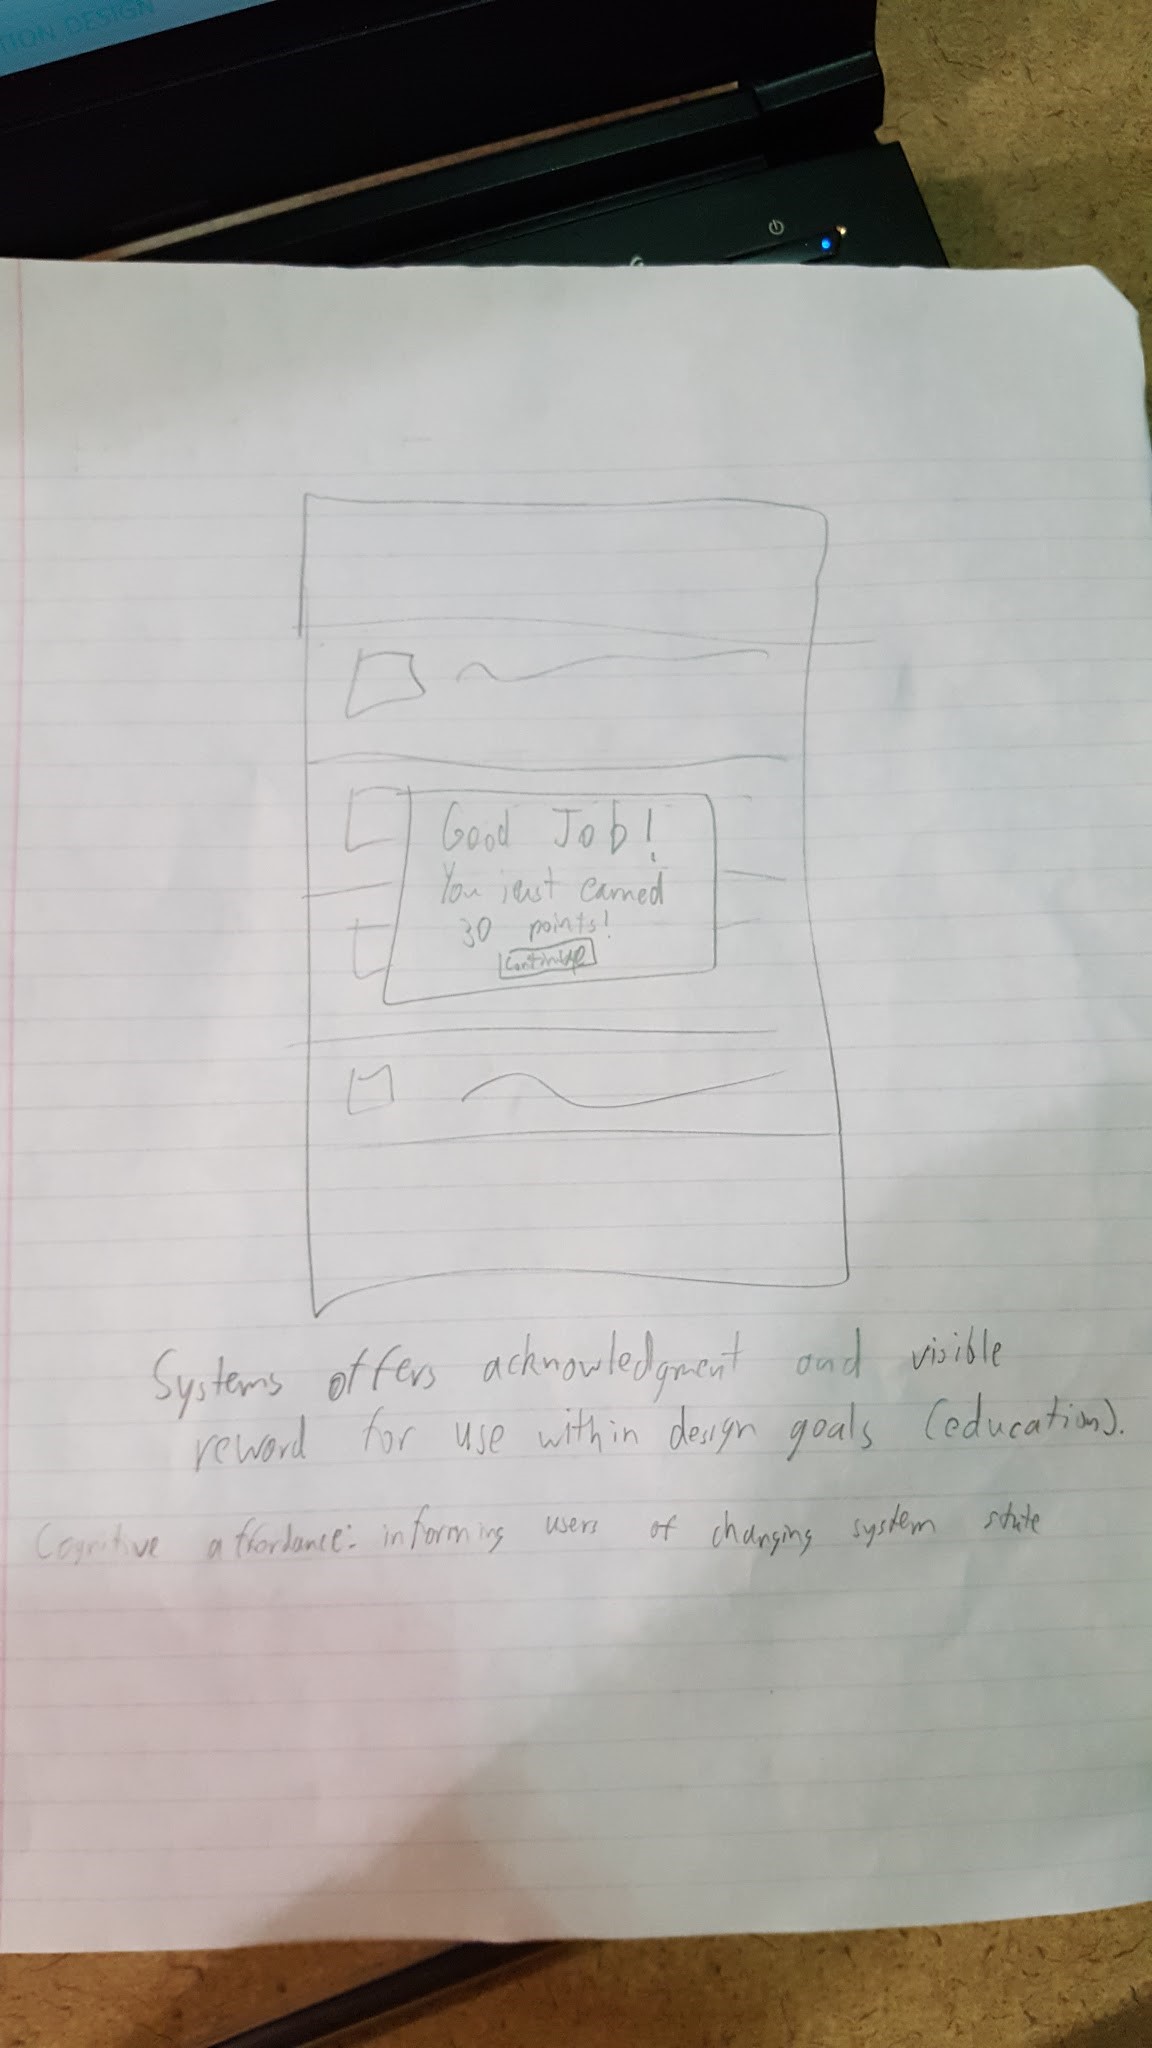 TION DESIGN
Good Job!
You just earned
30 points!
Continue
Systems offers acknowledgment and visible
reword for use within design goals (education).
Cognitive affordance: informing users of changing system state